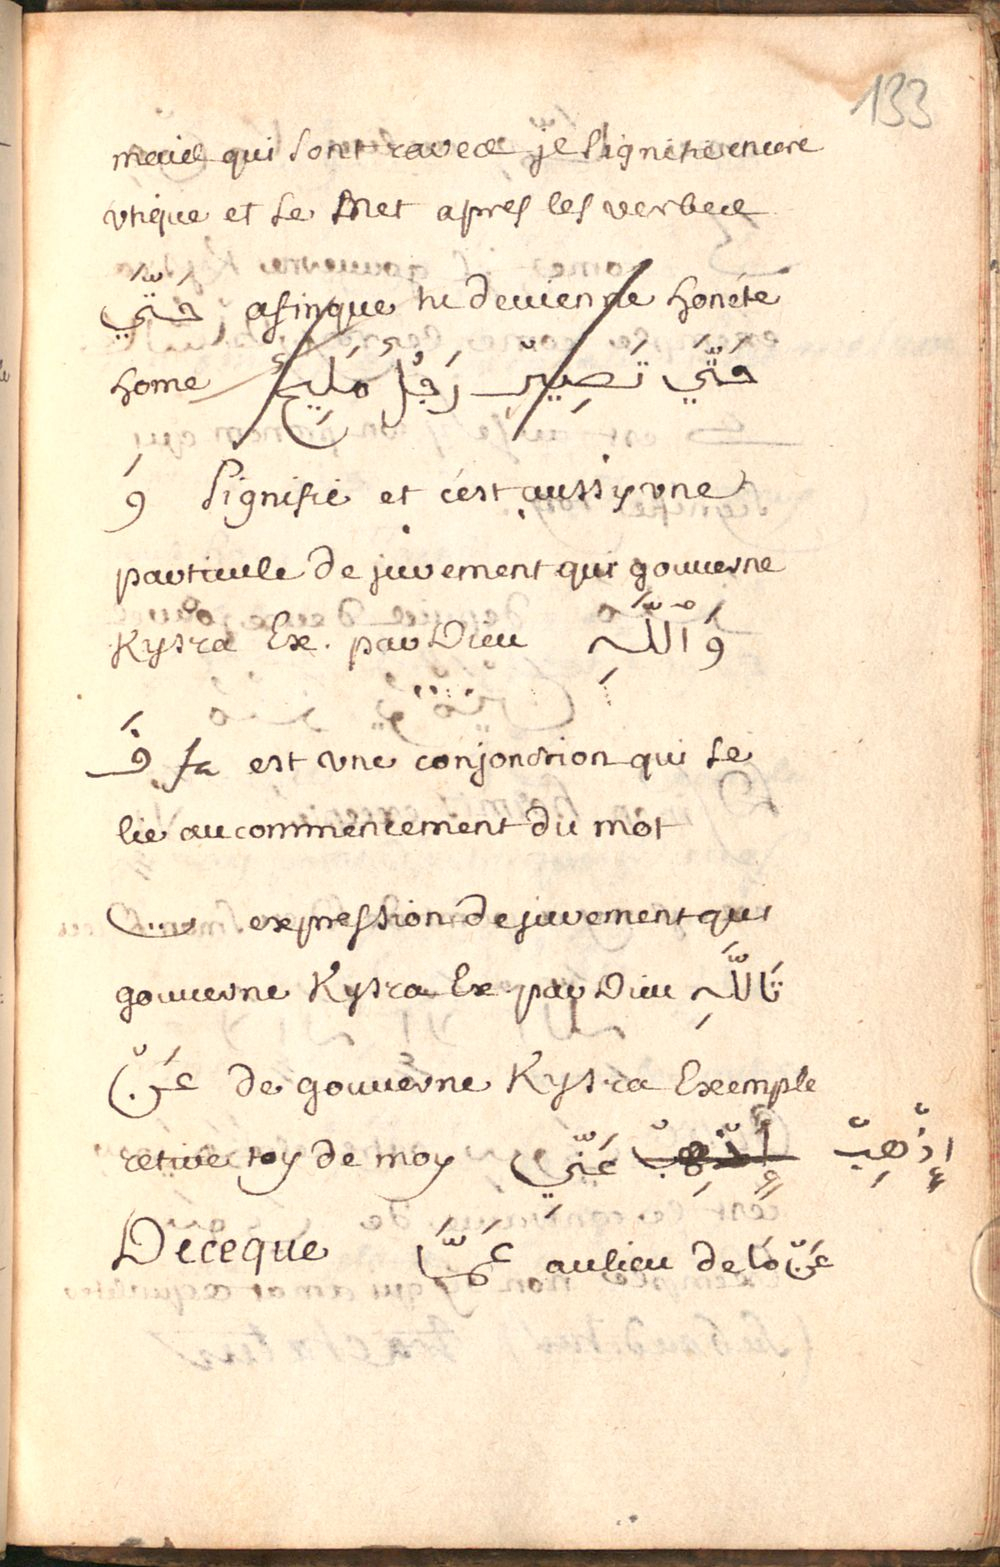 133
mais qui sont raves je signifie encore
usque et se met apres les verbes
حَتَّي afinque tu devienne honéte
home حَتَّي تَصِير رَجُل مَلِيح
وَ signifie et c'est aussy vne
particule de jurement qui gouuerne
Kysra Ex. par Dieu وَاللَّهِ
فَ fa est vne conjonction qui se
lie au commencement du mot
ت expression de jurement qui
gouuerne Kysra Ex. par Dieu تَاللَّهِ
عَنْ de gouuerne Kysra Exemple
retire toy de moy عَنِّي إِذْهِبْ
De ceque عَمَّا au lieu de عَنْ مَا